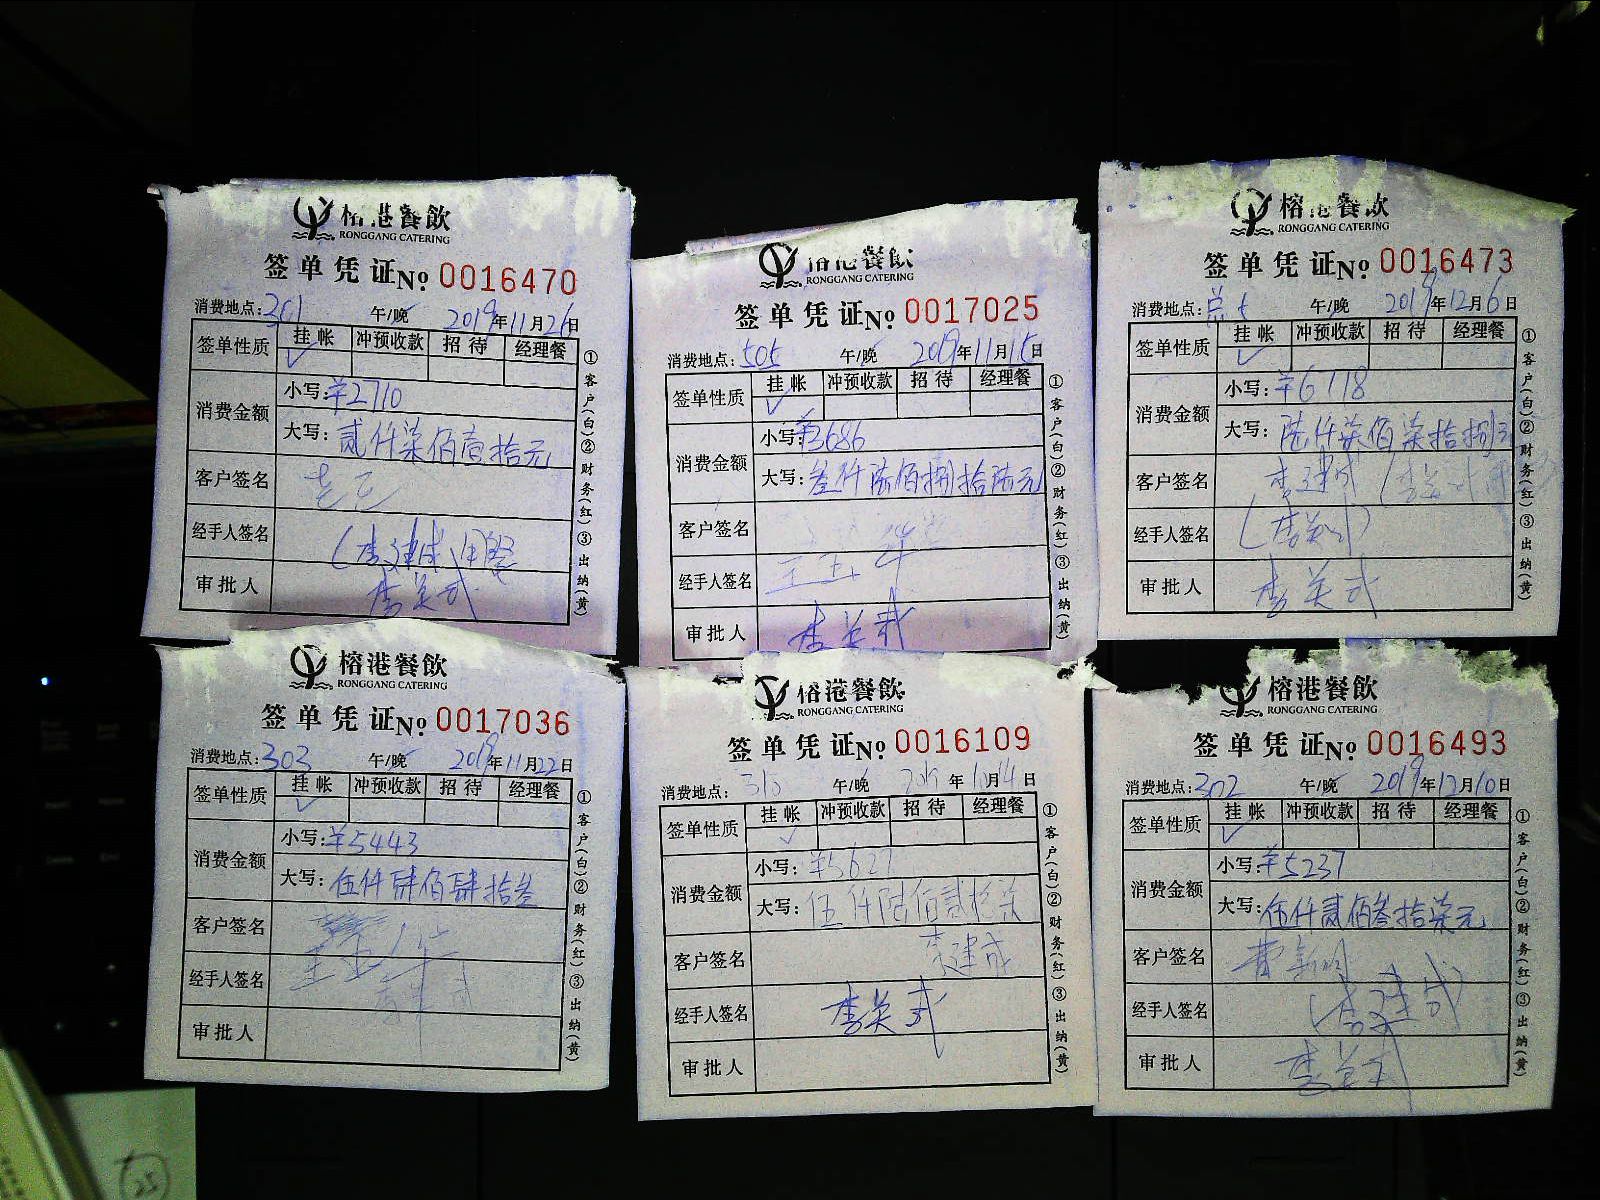 榕港餐飲
RONGGANG CATERING
签单凭证No 0016470
消费地点:301 午/晚 2019年11月26日
签单性质 挂帐 冲预收款 招待 经理餐
消费金额
小写:¥2710
大写:贰仟柒佰壹拾元
客户签名
经手人签名 (李建成
审批人 李英武
①客户(白)②财务(红)③出纳(黄)
榕港餐飲
RONGGANG CATERING
签单凭证No 0017025
消费地点:505 午/晚 2019年11月15日
签单性质 挂帐 冲预收款 招待 经理餐
消费金额
小写:¥3686
大写:叁仟陆佰捌拾陆元
客户签名
经手人签名 王玉华
审批人 李英武
①客户(白)②财务(红)③出纳(黄)
榕港餐飲
RONGGANG CATERING
签单凭证No 0016473
消费地点: 午/晚 2019年12月6日
签单性质 挂帐 冲预收款 招待 经理餐
消费金额
小写:¥6778
大写:陆仟柒佰柒拾捌元
客户签名 李建成
经手人签名
审批人 李英武
①客户(白)②财务(红)③出纳(黄)
榕港餐飲
RONGGANG CATERING
签单凭证No 0017036
消费地点:303 午/晚 2019年11月22日
签单性质 挂帐 冲预收款 招待 经理餐
消费金额
小写:¥5443
大写:伍仟肆佰肆拾叁
客户签名
经手人签名 王玉华
审批人
①客户(白)②财务(红)③出纳(黄)
榕港餐飲
RONGGANG CATERING
签单凭证No 0016109
消费地点:310 午/晚 2019年10月14日
签单性质 挂帐 冲预收款 招待 经理餐
消费金额
小写:¥5627
大写:伍仟陆佰贰拾柒
客户签名 李建成
经手人签名 李英武
审批人
①客户(白)②财务(红)③出纳(黄)
榕港餐飲
RONGGANG CATERING
签单凭证No 0016493
消费地点:302 午/晚 2019年12月10日
签单性质 挂帐 冲预收款 招待 经理餐
消费金额
小写:¥5237
大写:伍仟贰佰叁拾柒元
客户签名
经手人签名 (李建成)
审批人 李英武
①客户(白)②财务(红)③出纳(黄)